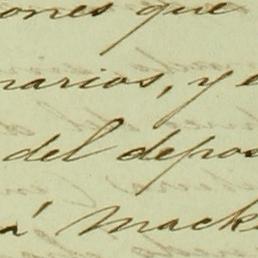 ones que
narios, y e
del depos
á Mack